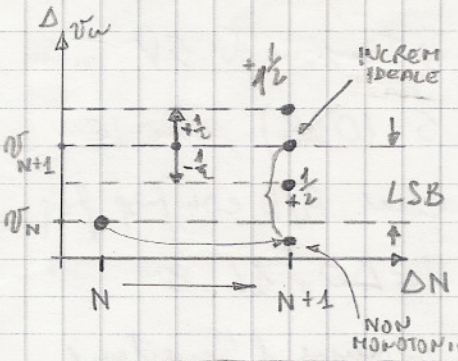 Δ
vu
+1 1/2
INCREM
IDEALE
+1/2
vN+1
-1/2
+1/2
LSB
vN
ΔN
N
N+1
NON
MONOTONI